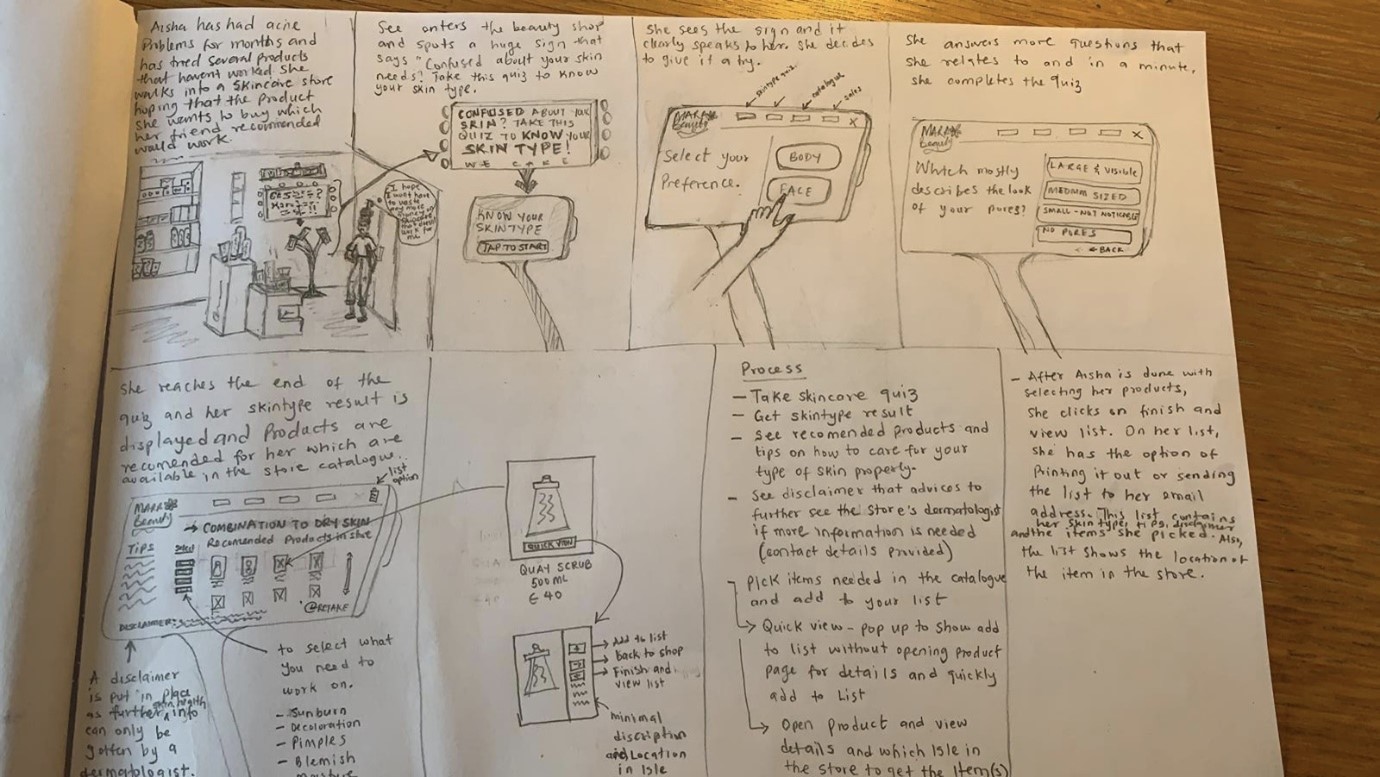 Aisha has had acne
Problems for months and
has tried several products
that havent worked. She
walks into a skincare store
hoping that the product
she wants to buy which
her friend recommended
would work.
I hope
I wont have
to waste
any more
money on
that doesnt
work for
me
See enters the beauty shop
and spots a huge sign that
says "Confused about your skin
needs? Take this quiz to know
your skin type.
CONFUSED ABOUT YOUR
SKIN? TAKE THIS
QUIZ TO KNOW YOUR
SKIN TYPE!
WE CARE
KNOW YOUR
SKINTYPE
TAP TO START
She sees the sign and it
clearly speaks to her. She decides
to give it a try.
skintype quiz
catalogue
sales
MARA
beauty
X
Select your
Preference.
BODY
FACE
She answers more questions that
she relates to and in a minute,
she completes the quiz
MARA
beauty
X
Which mostly
describes the look
of your pores?
LARGE & VISIBLE
MEDIUM SIZED
SMALL - NOT NOTICABLE
NO PORES
← BACK
She reaches the end of the
quiz and her skintype result is
displayed and Products are
recomended for her which are
available in the store catalogue.
list
option
MARA
beauty
→ COMBINATION TO DRY SKIN
Recomended Products in store
TIPS
RETAKE
DISCLAIMER:
A disclaimer
is put in place
as further skin health info
can only be
gotten by a
dermatologist.
to select what
you need to
work on.
- Sunburn
- Decoloration
- Pimples
- Blemish
QUICK VIEW
QUAY SCRUB
500ML
£ 40
Add to list
Back to shop
Finish and
view list
minimal
discription
and Location
in Isle
Process
- Take skincare quiz
- Get skintype result
- See recomended products and
tips on how to care for your
type of skin properly.
- See disclaimer that advices to
further see the store's dermatologist
if more information is needed
(contact details provided)
Pick items needed in the catalogue
and add to your list
Quick view - pop up to show add
to list without opening product
page for details and quickly
add to List
Open product and view
details and which Isle in
the store to get the Item(s)
- After Aisha is done with
selecting her products,
She clicks on finish and
view list. On her list,
she has the option of
Printing it out or sending
the list to her email
address. This list contains
her skin type, tips, disclaimer
and the items she picked. Also,
the list shows the location of
the item in the store.